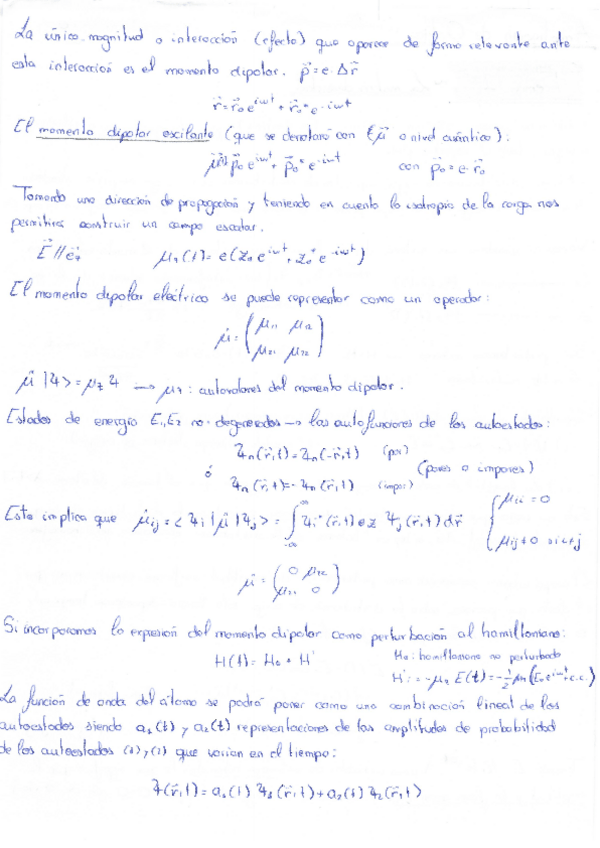 La única magnitud o interacción (efecto) que aparece de forma relevante ante
esta interacción es el momento dipolar. p⃗ = e·Δr⃗
r⃗ = r⃗₀e^{iωt} + r⃗₀*e^{-iωt}
El momento dipolar oscilante (que se denotará con μ⃗ a nivel cuántico):
p⃗₀e^{iωt} + p⃗₀*e^{-iωt} con p⃗₀ = e·r⃗₀
Tomando una dirección de propagación y teniendo en cuenta la isotropía de la carga nos
permitirá construir un campo escalar.
E⃗ // e⃗z μz(t) = e(z₀e^{iωt} + z₀*e^{-iωt})
El momento dipolar eléctrico se puede representar como un operador:
μ̂ = (μ₁₁ μ₁₂
μ₂₁ μ₂₂)
μ̂ |Ψ> = μz Ψ → μz: autovalores del momento dipolar.
Estados de energía E₁, E₂ no degenerados → las autofunciones de los autoestados:
Ψn(r⃗,t) = Ψn(-r⃗,t) (par)
ó (pares o impares)
Ψn(r⃗,t) = -Ψn(r⃗,t) (impar)
Esto implica que μ̂ij = <Ψi|μ̂|Ψj> = ∫_{-∞}^{∞} Ψi*(r⃗,t) e z Ψj(r⃗,t) dr⃗ { μii = 0
μij ≠ 0 si i≠j
μ̂ = (0 μ₁₂
μ₂₁ 0)
Si incorporamos la expresión del momento dipolar como perturbación al hamiltoniano:
H(t) = H₀ + H' H₀: hamiltoniano no perturbado
H' = -μz E(t) = -½ μ (E₀e^{iωt} + c.c.)
La función de onda del átomo se podrá poner como una combinación lineal de los
autoestados siendo a₁(t) y a₂(t) representaciones de las amplitudes de probabilidad
de los autoestados (1) y (2) que varían en el tiempo:
Ψ(r⃗,t) = a₁(t) Ψ₁(r⃗,t) + a₂(t) Ψ₂(r⃗,t)